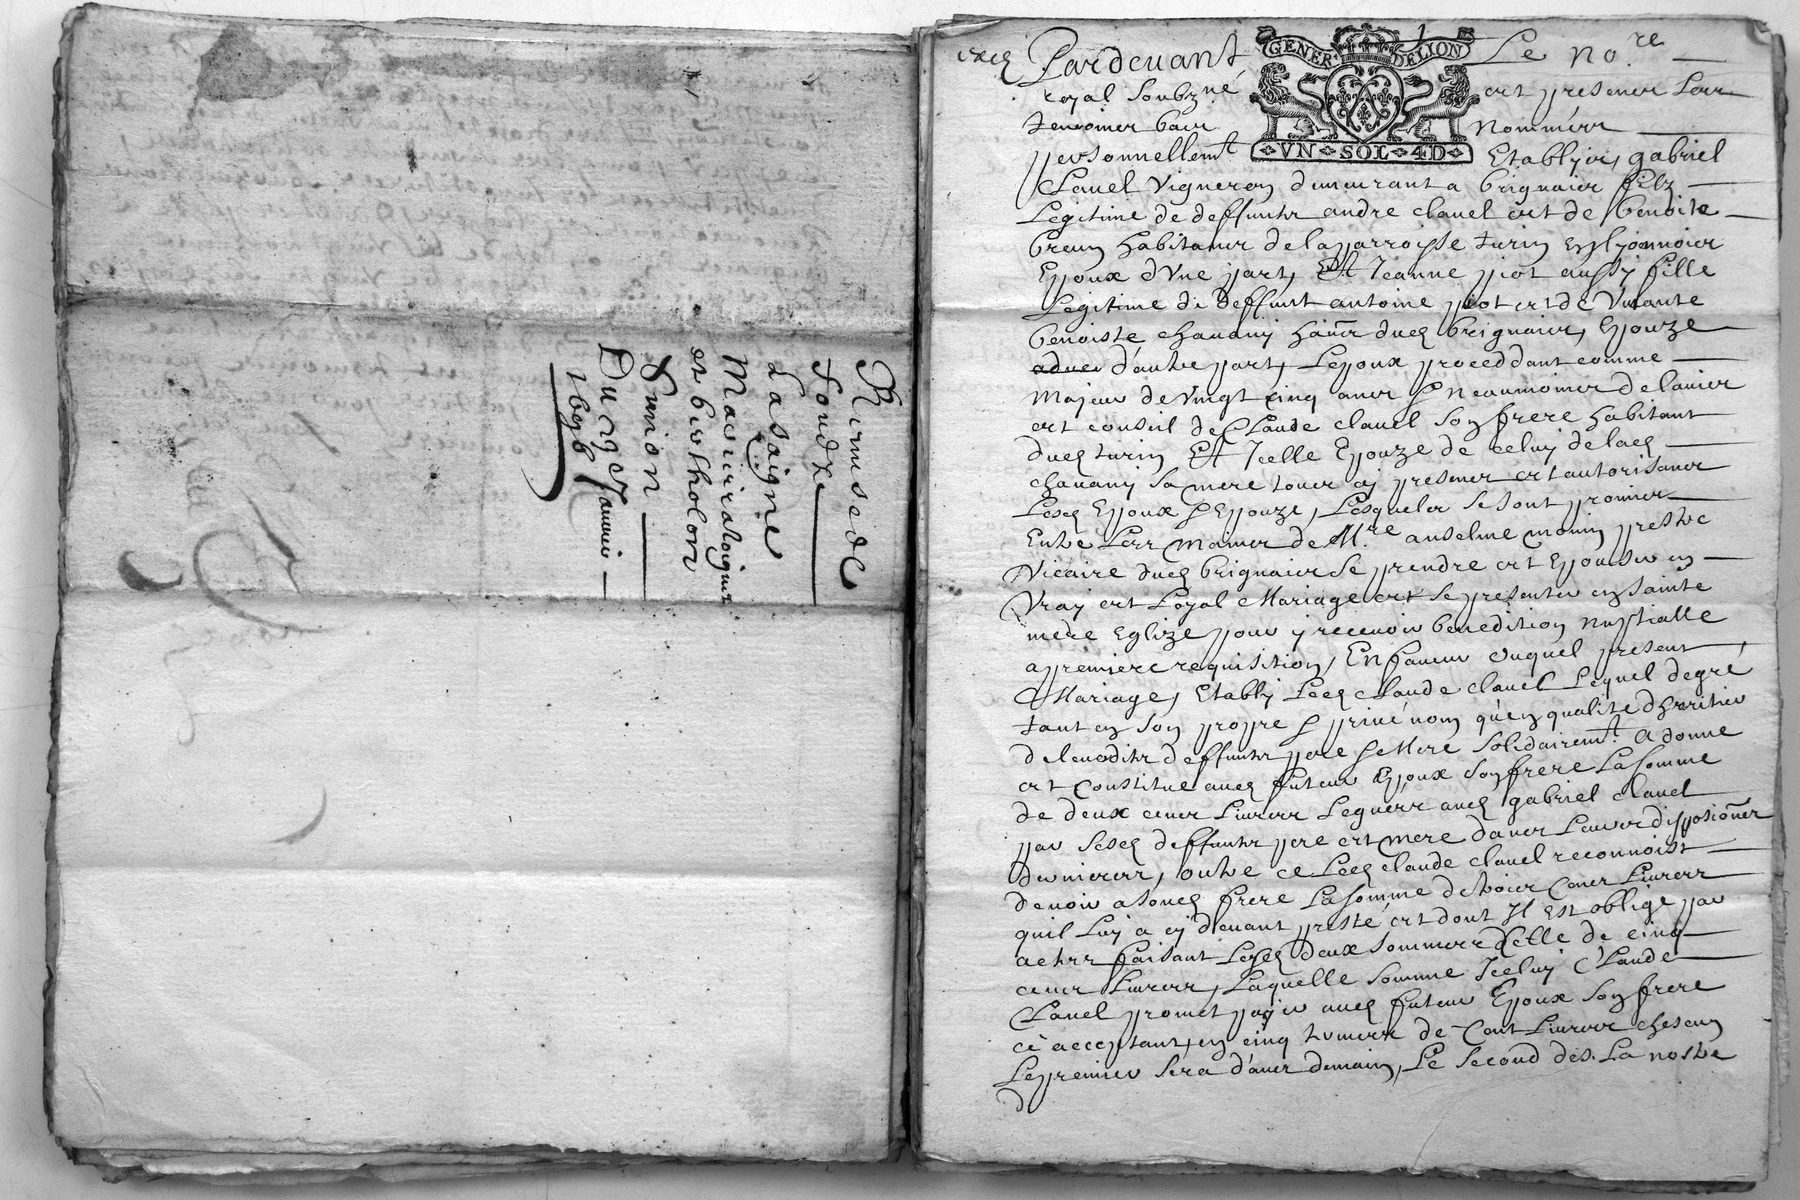 Remise de
fond
La saigne
et bertholon
Simon
Du 23 Janvier
1696
GENER DE LION
VN SOL 4D
Pardevant Le no.re
royal soubz.né ert presener Lerr
temoiner bacr nommérr
personnellem.t Etablyir, gabriel
Clavel vigneron demeurant a brignaier filz
Legitime de deffuntr andre clavel ert de benoite
breun habitaner de la parroisse turin en lyonnoier
Epoux d'vne part, Et Jeanne piot aussy fille
Legitime de deffunt antoine piot ert de vivante
benoiste chavany ha͠er dud brignaier, Epouze
d'autre part, L'epoux proceddant comme
Majeur de vingt cinq aner & neanmoiner de l'avier
ert conseil de Claude clavel son frere habitant
dud turin Et Icelle Epouze de celuy de lad
chavany sa mere touer cy presener ert autorisaner
Lesd Epoux & Epouze, Lesqueler se sont promier
Entre Lerr mainer de M.re anselme monin prestre
Vicaire dud brignaier se prendre ert Epouser en
Vray ert Loyal Mariage ert se presenter en sainte
mere Eglize pour y recevoir benedition nuptialle
a premiere requisition, En faveur duquel present
Mariage, Etably Led Claude clavel Lequel de gré
tant en son propre & privé nom qu'en qualité d'heritier
de sesditr deffuntr pere & Mere solidairem.t a donné
ert Constitué aud futeur Epoux son frere La somme
de deux cener Livrerr Leguérr aud gabriel clavel
par sesd deffuntr pere ert mere daner Leurer dispositioner
dernierer, outre ce Led Claude clavel reconnoist
devoir a sond frere La somme de troier Cener Livrerr
quil Luy a cy devant presté ert dont Il Est obligé par
actrr faisant Lesd deux sommerr celle de cinq
cener Livrerr, Laquelle somme Iceluy Claude
Clavel promet payer aud futeur Epoux son frere
ce acceptant, en cinq termerr de Cent Livrerr chescun
Le premier sera d'auer demain, Le second dés La nostre
d